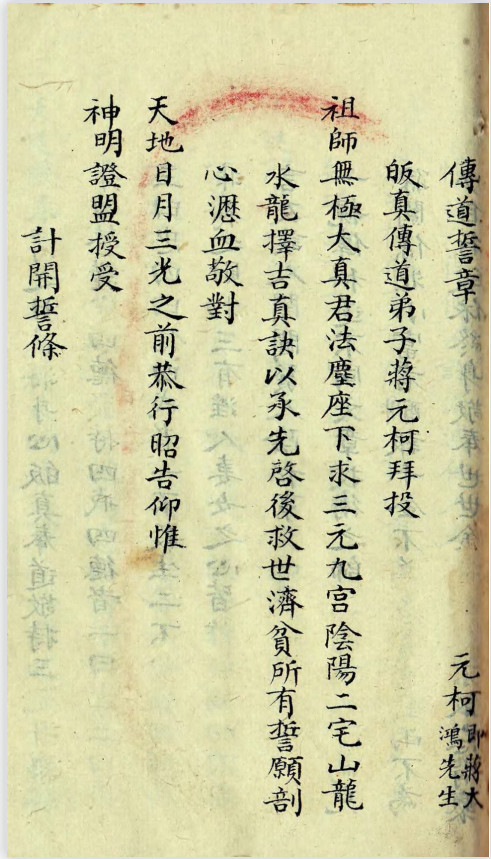 傳道誓章 元柯即蔣大鴻先生
皈真傳道弟子蔣元柯拜投
祖師無極大真君法座下求三元九宮陰陽二宅山龍
水龍擇吉真訣以承先啓後救世濟貧所有誓願剖
心瀝血敬對
天地日月三光之前恭行昭告仰惟
神明證盟授受
計開誓條